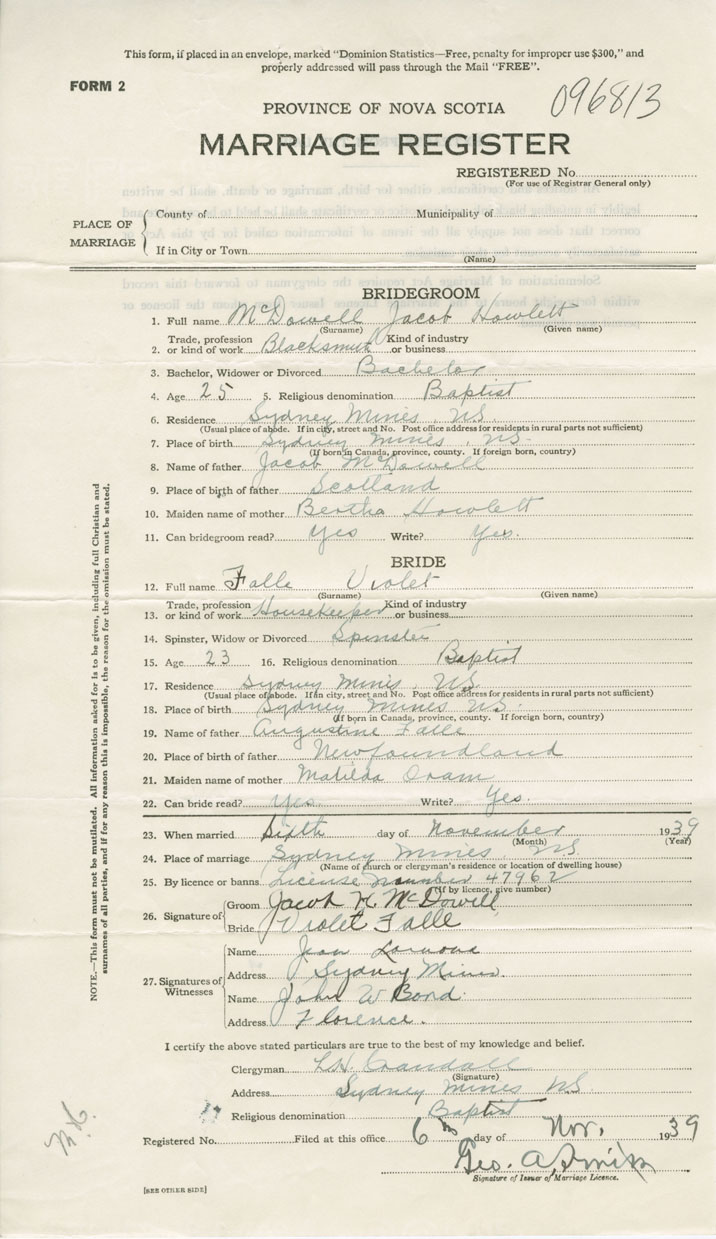 This form, if placed in an envelope, marked "Dominion Statistics—Free, penalty for improper use $300," and
properly addressed will pass through the Mail "FREE".
FORM 2
096813
PROVINCE OF NOVA SCOTIA
MARRIAGE REGISTER
REGISTERED No.
(For use of Registrar General only)
PLACE OF MARRIAGE
County of Municipality of
If in City or Town
(Name)
BRIDEGROOM
1. Full name McDowell Jacob Howlett
(Surname) (Given name)
2. Trade, profession or kind of work Blacksmith Kind of industry or business
3. Bachelor, Widower or Divorced Bachelor
4. Age 25 5. Religious denomination Baptist
6. Residence Sydney Mines, N.S.
(Usual place of abode. If in city, street and No. Post office address for residents in rural parts not sufficient)
7. Place of birth Sydney Mines, N.S.
(If born in Canada, province, county. If foreign born, country)
8. Name of father Jacob McDowell
9. Place of birth of father Scotland
10. Maiden name of mother Bertha Howlett
11. Can bridegroom read? Yes Write? Yes.
BRIDE
12. Full name Falle Violet
(Surname) (Given name)
13. Trade, profession or kind of work Housekeeper Kind of industry or business
14. Spinster, Widow or Divorced Spinster
15. Age 23 16. Religious denomination Baptist
17. Residence Sydney Mines, N.S.
(Usual place of abode. If in city, street and No. Post office address for residents in rural parts not sufficient)
18. Place of birth Sydney Mines N.S.
(If born in Canada, province, county. If foreign born, country)
19. Name of father Augustine Falle
20. Place of birth of father Newfoundland
21. Maiden name of mother Matilda Oram
22. Can bride read? Yes. Write? Yes.
23. When married Sixth day of November 1939
(Month) (Year)
24. Place of marriage Sydney Mines, N.S
(Name of church or clergyman's residence or location of dwelling house)
25. By licence or banns License number 47962
(If by licence, give number)
26. Signature of
Groom Jacob H. McDowell
Bride Violet Falle
27. Signatures of Witnesses
Name Jean
Address Sydney Mines.
Name John W Bond.
Address Florence.
I certify the above stated particulars are true to the best of my knowledge and belief.
Clergyman L.H. Crandall
(Signature)
Address Sydney Mines N.S.
Religious denomination Baptist
Registered No. Filed at this office 6th day of Nov. 1939
Geo. A.
Signature of Issuer of Marriage Licence.
[SEE OTHER SIDE]
NOTE.—This form must not be mutilated. All information asked for is to be given, including full Christian and
surnames of all parties, and if for any reason this is impossible, the reason for the omission must be stated.